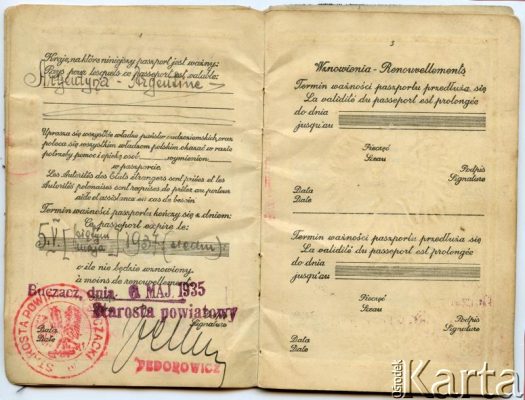 Kraje, na które niniejszy paszport jest ważny:
Pays pour lesquels ce passeport est valable:
Argentyna - Argentine
Uprasza się wszystkie władze państw cudzoziemskich, oraz
poleca się wszystkim władzom polskim okazać w razie
potrzeby pomoc i opiekę osob wymienion
w paszporcie.
Les Autorités des Etats étrangers sont priées et les
Autorités polonaises sont requises de prêter au porteur
aide et assistance en cas de besoin
Termin ważności paszportu kończy się z dniem:
Ce passeport expire le:
5.V. 1937
o ile nie będzie wznowiony.
à moins de renouvellement.
Buczacz, dnia MAJ 1935
Starosta powiatowy
Signature
Data
Date
FEDOROWICZ
STAROSTA POW
3
Wznowienia - Renouvellements
Termin ważności paszportu przedłuża się
La validité du passeport est prolongée
do dnia
jusqu'au
Pieczęć
Sceau
Podpis
Signature
Data
Date
Termin ważności paszportu przedłuża się
La validité du passeport est prolongée
do dnia
jusqu'au
Pieczęć
Sceau
Podpis
Signature
Data
Date
ośrodek
Karta